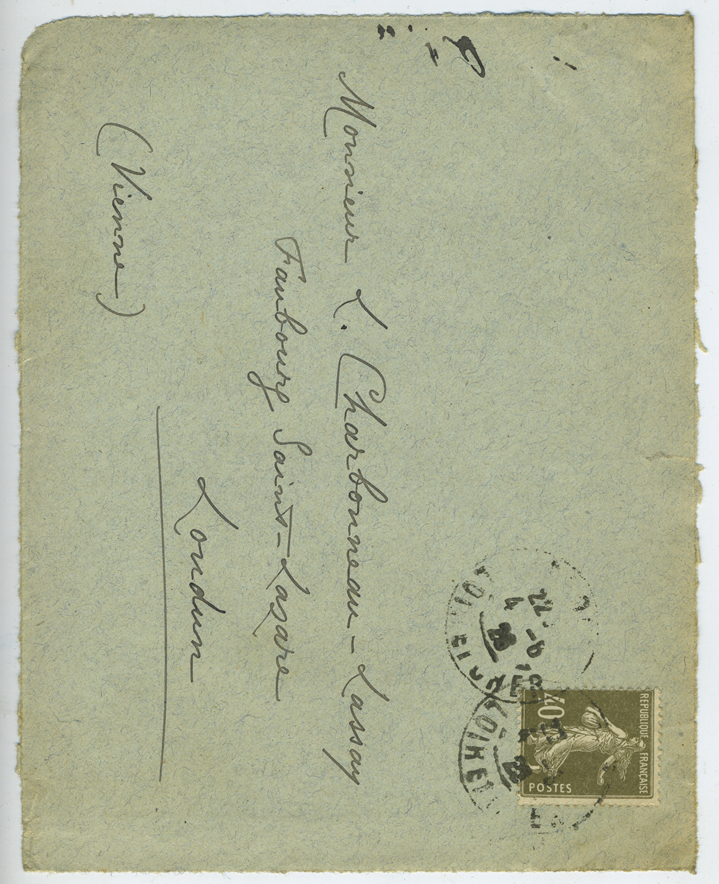 Monsieur L. Charbonneau-Lassay
Faubourg Saint-Lazare
Loudun
(Vienne)
REPUBLIQUE FRANÇAISE
40
POSTES
22 - 6
4 28